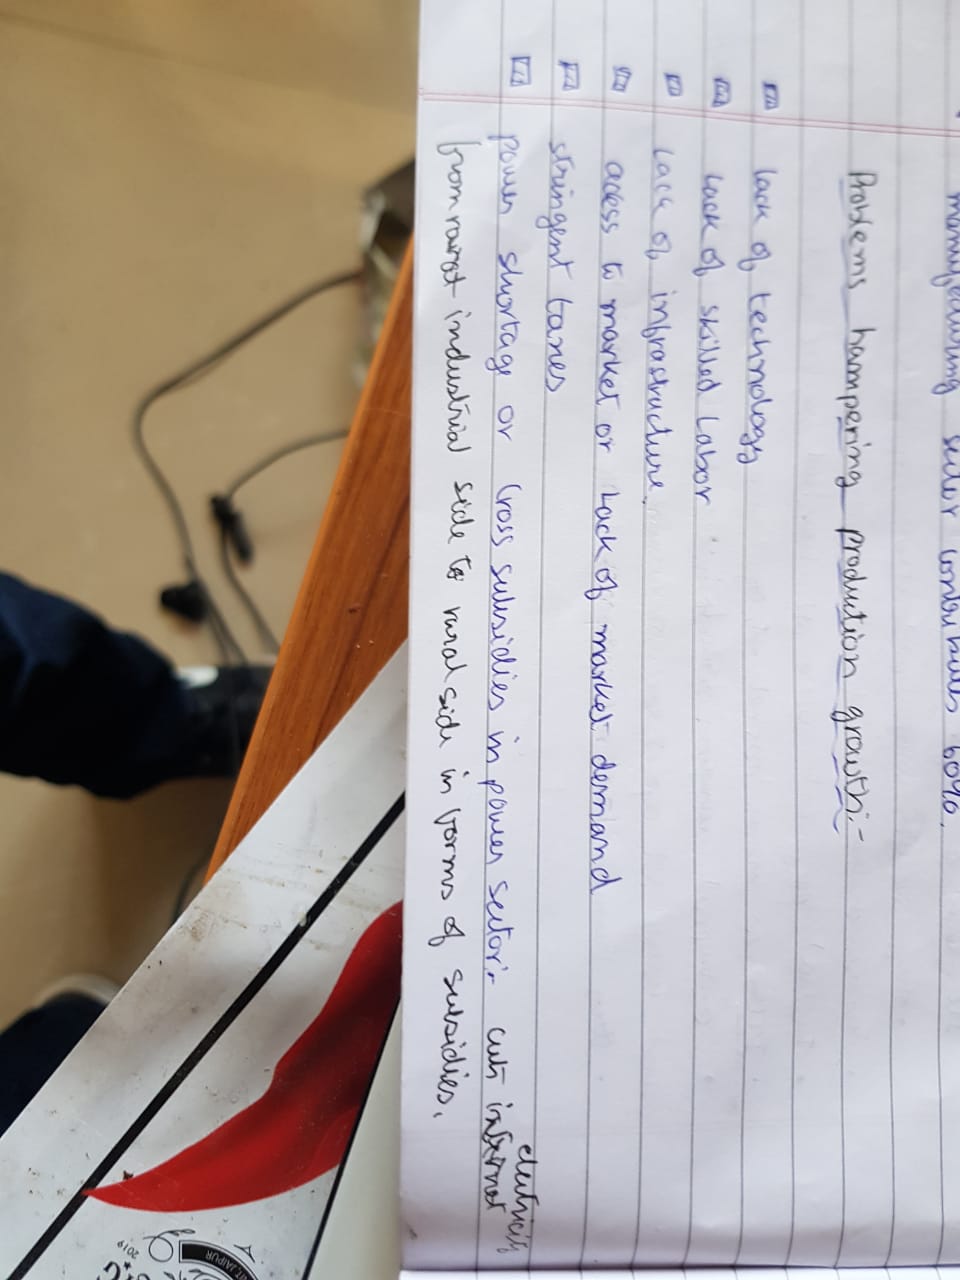 manufacturing sector contributes 60%.
Problems hampering production growth:-
Lack of technology
Lack of skilled Labor
Lack of infrastructure
access to market or Lack of market demand
stringent taxes
power shortage or Cross subsidies in power sector:- cuts electricity
from industrial side to rural side in forms of subsidies.
2019
JAIPUR